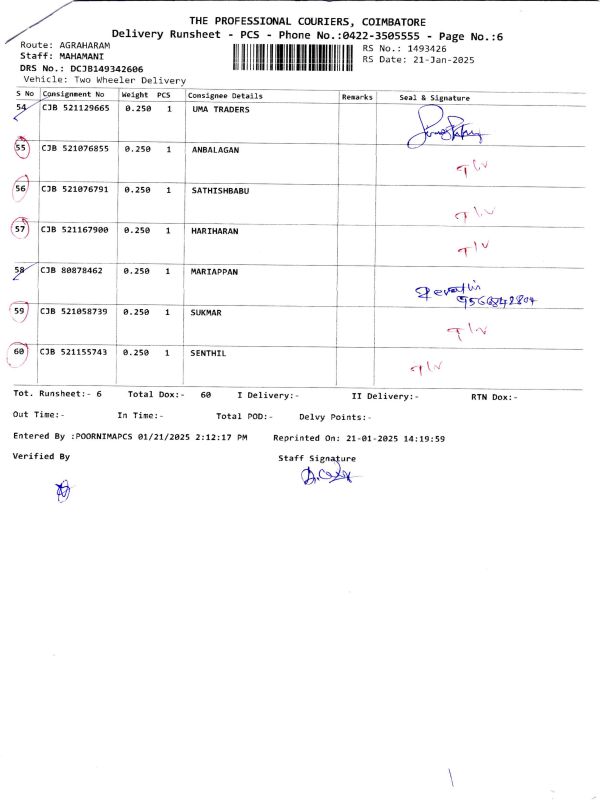 THE PROFESSIONAL COURIERS, COIMBATORE
Delivery Runsheet - PCS - Phone No.:0422-3505555 - Page No.:6
Route: AGRAHARAM RS No.: 1493426
Staff: MAHAMANI RS Date: 21-Jan-2025
DRS No.: DCJB149342606
Vehicle: Two Wheeler Delivery
S No Consignment No Weight PCS Consignee Details Remarks Seal & Signature
54 CJB 521129665 0.250 1 UMA TRADERS
55 CJB 521076855 0.250 1 ANBALAGAN
56 CJB 521076791 0.250 1 SATHISHBABU
57 CJB 521167900 0.250 1 HARIHARAN
58 CJB 80878462 0.250 1 MARIAPPAN
59 CJB 521058739 0.250 1 SUKMAR
60 CJB 521155743 0.250 1 SENTHIL
Tot. Runsheet:- 6 Total Dox:- 60 I Delivery:- II Delivery:- RTN Dox:-
Out Time:- In Time:- Total POD:- Delvy Points:-
Entered By :POORNIMAPCS 01/21/2025 2:12:17 PM Reprinted On: 21-01-2025 14:19:59
Verified By Staff Signature